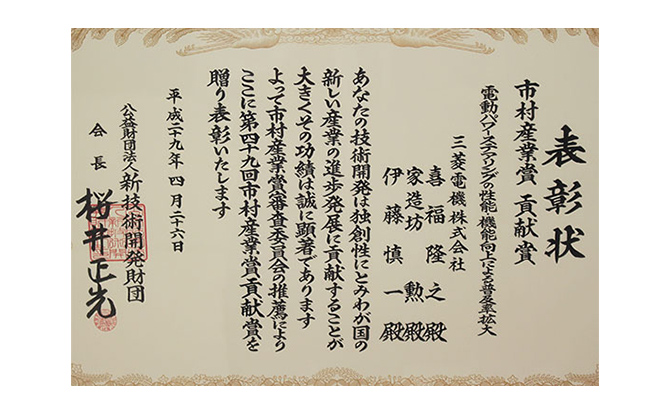 表彰状
市村産業賞 貢献賞
電動パワーステアリングの性能・機能向上による普及率拡大
三菱電機株式会社
喜福隆之殿
家造坊勲殿
伊藤慎一殿
あなたの技術開発は独創性にとみわが国の
新しい産業の進歩発展に貢献することが
大きくその功績は誠に顕著であります
よって市村産業賞審査委員会の推薦により
ここに第四十九回市村産業賞貢献賞を
贈り表彰いたします
平成二十九年四月二十六日
公益財団法人新技術開発財団
会長 桜井正光